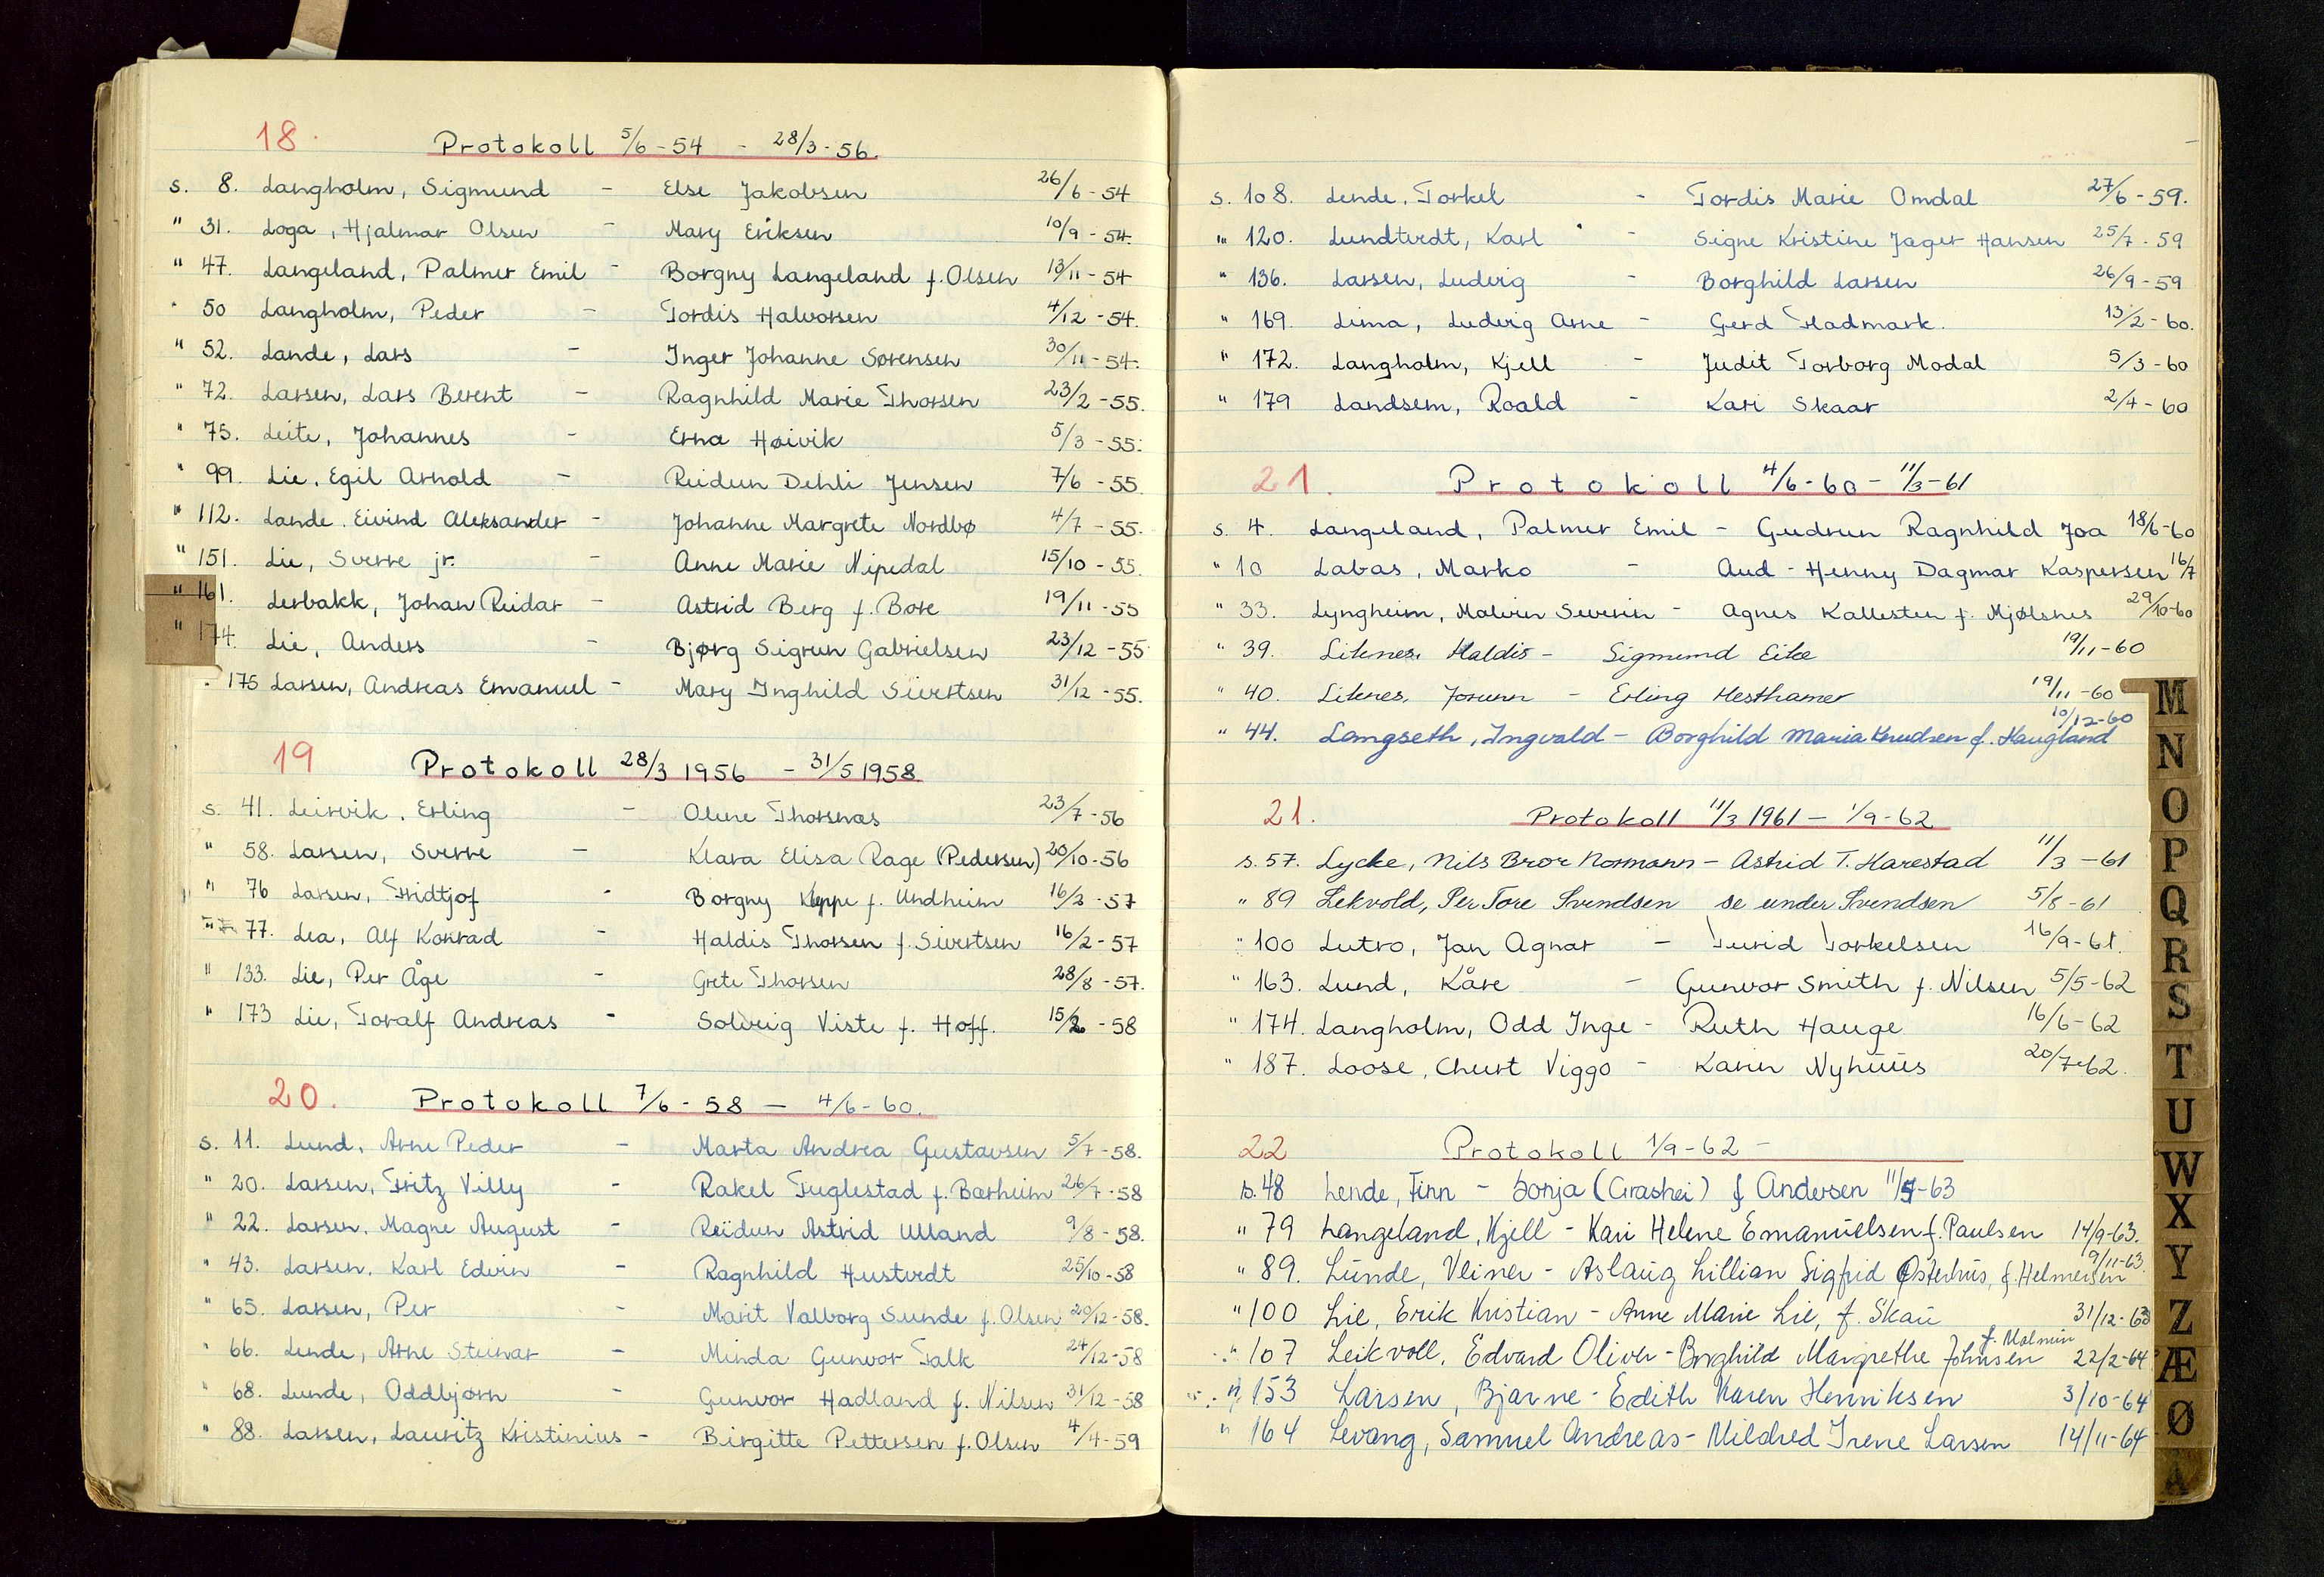 18. Protokoll 5/6-54 - 28/3-56.
s. 8. Langholm, Sigmund - Else Jakobsen 26/6-54
" 31. Loga, Hjalmar Olsen - Mary Eriksen 10/9-54.
" 47. Langeland, Palmer Emil - Borgny Langeland f. Olsen 13/11-54
" 50 Langholm, Peder - Tordis Halvorsen 4/12-54.
" 52. Lande, Lars - Inger Johanne Sørensen 30/11-54.
" 72. Larsen, Lars Berent - Ragnhild Marie Thorsen 23/2-55.
" 75. Leite, Johannes - Erna Høivik 5/3-55.
" 99. Lie, Egil Arnold - Reidun Dehli Jensen 7/6-55.
" 112. Lande, Eivind Aleksander - Johanne Margrete Nordbø 4/7-55.
" 151. Lie, Sverre jr. - Anne Marie Nipedal 15/10-55.
" 161. Lerbakk, Johan Reidar - Astrid Berg f. Bore 19/11-55
" 174. Lie, Anders - Bjørg Sigrun Gabrielsen 23/12-55
" 175 Larsen, Andreas Emanuel - Mary Inghild Sivertsen 31/12-55.
19 Protokoll 28/3 1956 - 31/5 1958
s. 41. Leirvik, Erling - Olene Thorsnas 23/7-56
" 58. Larsen, Sverre - Klara Elisa Rage (Pedersen) 20/10-56
" 76 Larsen, Fridtjof - Borgny Kleppe f. Undheim 16/2-57
" 77. Lea, Alf Konrad - Haldis Thorsen f. Sivertsen 16/2-57
" 133. Lie, Per Åge - Grete Thorsen 28/8-57.
" 173 Lie, Toralf Andreas - Solveig Viste f. Hoff. 15/2-58
20. Protokoll 7/6-58 - 4/6-60.
s. 11. Lund, Arne Peder - Marta Andrea Gustavsen 5/7-58.
" 20. Larsen, Fritz Villy - Rakel Fuglestad f. Barheim 26/7-58
" 22. Larsen, Magne August - Reidun Astrid Ulland 9/8-58.
" 43. Larsen, Karl Edvin - Ragnhild Hustvedt 25/10-58
" 65. Larsen, Per - Marit Valborg Sunde f. Olsen 20/12-58.
" 66. Lende, Arne Steinar - Minda Gunvor Falk 24/12-58
" 68. Lunde, Oddbjørn - Gunvor Hadland f. Nilsen 31/12-58
" 88. Larsen, Lauritz Kristinius - Birgitte Pettersen f. Olsen 4/4-59
s. 108. Lende, Torkel - Tordis Marie Omdal 27/6-59.
" 120. Lundtvedt, Karl - Signe Kristine Jager Hansen 25/7-59
" 136. Larsen, Ludvig - Borghild Larsen 26/9-59
" 169. Lima, Ludvig Arne - Gerd Fladmark. 13/2-60.
" 172. Langholm, Kjell - Judit Torborg Modal 5/3-60
" 179 Landsem, Roald - Kari Skaar 2/4-60
21. Protokoll 4/6-60 - 11/3-61
s. 4. Langeland, Palmer Emil - Gudrun Ragnhild Joa 18/6-60
" 10 Labas, Marko - Aud-Henny Dagmar Kaspersen 16/7
" 33. Lyngheim, Malvin Severin - Agnes Kallesten f. Mjølsnes 29/10-60
" 39. Liknes, Haldis - Sigmund Eike 19/11-60
" 40. Liknes, Jorunn - Erling Hesthamer 19/11-60
" 44. Langseth, Ingvald - Borghild Maria Knudsen f. Haugland 10/12-60
21. Protokoll 11/3 1961 - 1/9-62
s. 57. Lycke, Nils Bror Normann - Astrid T. Harestad 11/3-61
" 89 Lekvold, Per Tore Svendsen se under Svendsen 5/8-61
" 100 Lutro, Jan Agnar - Turid Torkelsen 16/9-61.
" 163. Lund, Kåre - Gunvor Smith f. Nilsen 5/5-62
" 174. Langholm, Odd Inge - Ruth Hauge 16/6-62
" 187. Loose, Churt Viggo - Karin Nyhuus 20/7-62.
22 Protokoll 1/9-62 -
s. 48 Lende, Finn - Sonja (Grashei) f Andersen 11/5-63
" 79 Langeland, Kjell - Kari Helene Emanuelsen f. Paulsen 14/9-63.
" 89. Lunde, Veiner - Aslaug Lillian Sigfrid Østerhus, f. Helmersen 9/11-63.
" 100 Lie, Erik Kristian - Anne Marie Lie, f. Skau 31/12-63
" 107 Leikvoll, Edvard Oliver - Borghild Margrethe Johnsen f. Malmin 22/2-64
" 153 Larsen, Bjarne - Edith Karen Henriksen 3/10-64
" 164 Levang, Samuel Andreas - Mildred Irene Larsen 14/11-64
M
N
O
P
Q
R
S
T
U
W
X
Y
Z
Æ
Ø
A